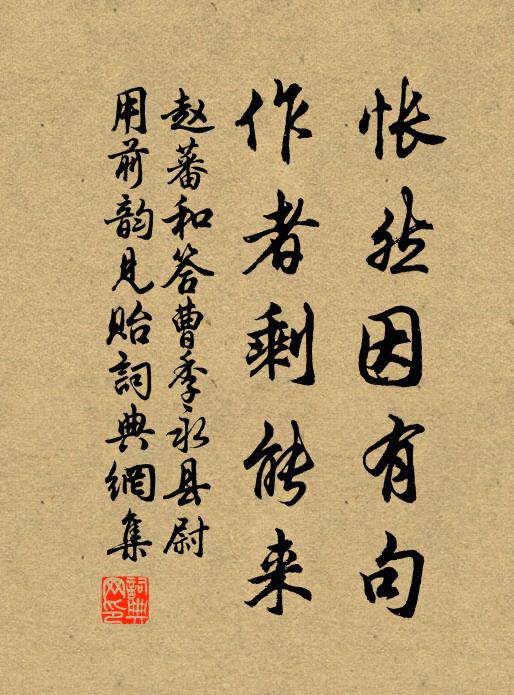 怅然因有句
作者剩能来
赵蕃和答曹季永县尉
用前韵见贻詞典網集
詞典网印